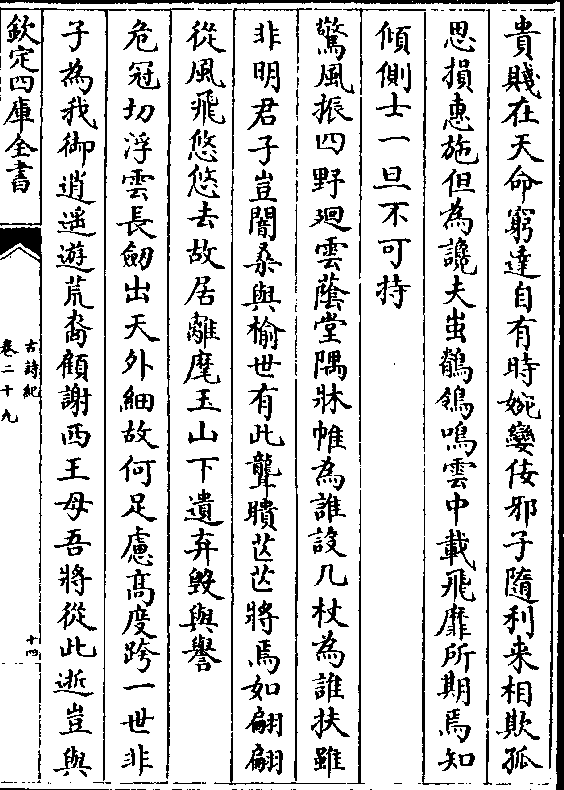 貴賤在天命窮達自有時婉孌佞邪子隨利来相欺孤
思損惠施但為讒夫蚩鶺鴒鳴雲中載飛靡所期焉知
傾側士一旦不可持
驚風振四野廻雲蔭堂隅牀帷為誰設几杖為誰扶雖
非明君子豈闇桑與榆世有此聾聵芒芒將焉如翩翩
從風飛悠悠去故居離麾玉山下遺弃毀與譽
危冠切浮雲長劒出天外細故何足慮髙度跨一世非
子為我御逍遥遊荒裔顧謝西王母吾將從此逝豈與
欽定四庫全書
古詩紀
卷二十九
十四